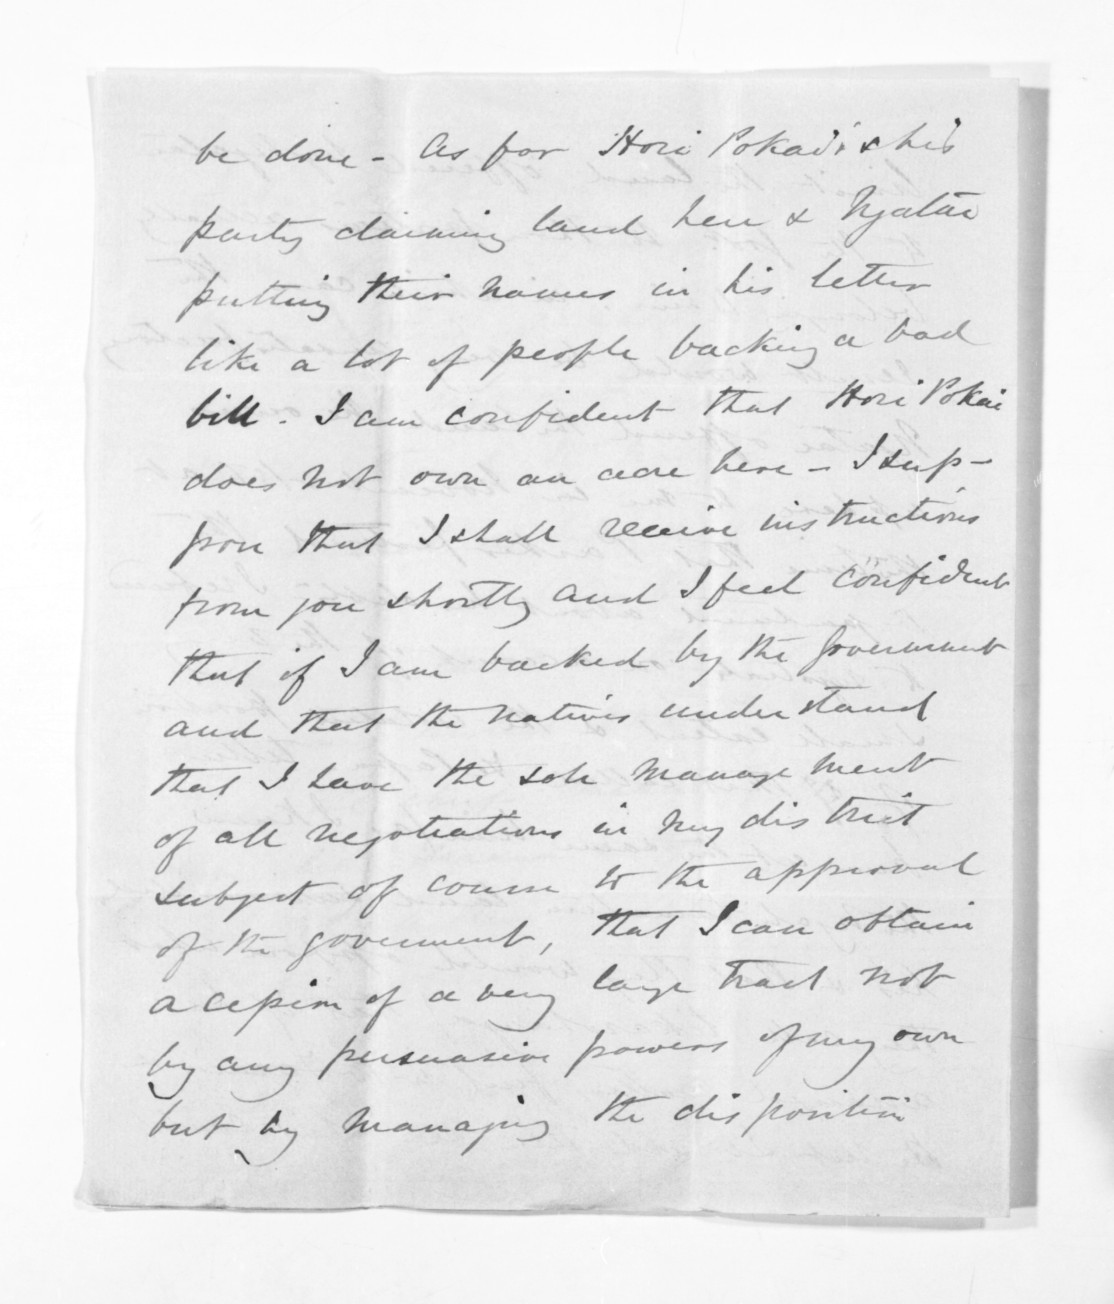 be done - as for Hori Pokai's & his
party claiming land here & Ngatai
putting their names in his letter
like a lot of people backing a bad
bill. I am confident that Hori Pokai
does not own an acre here - I sup-
pose that I shall receive instructions
from you shortly and I feel confident
that if I am backed by the Government
and that the natives understand
that I have the sole management
of all negotiations in my district
subject of course to the approval
of the government, that I can obtain
a cession of a very large tract not
by any persuasive powers of my own
but by managing the disposition